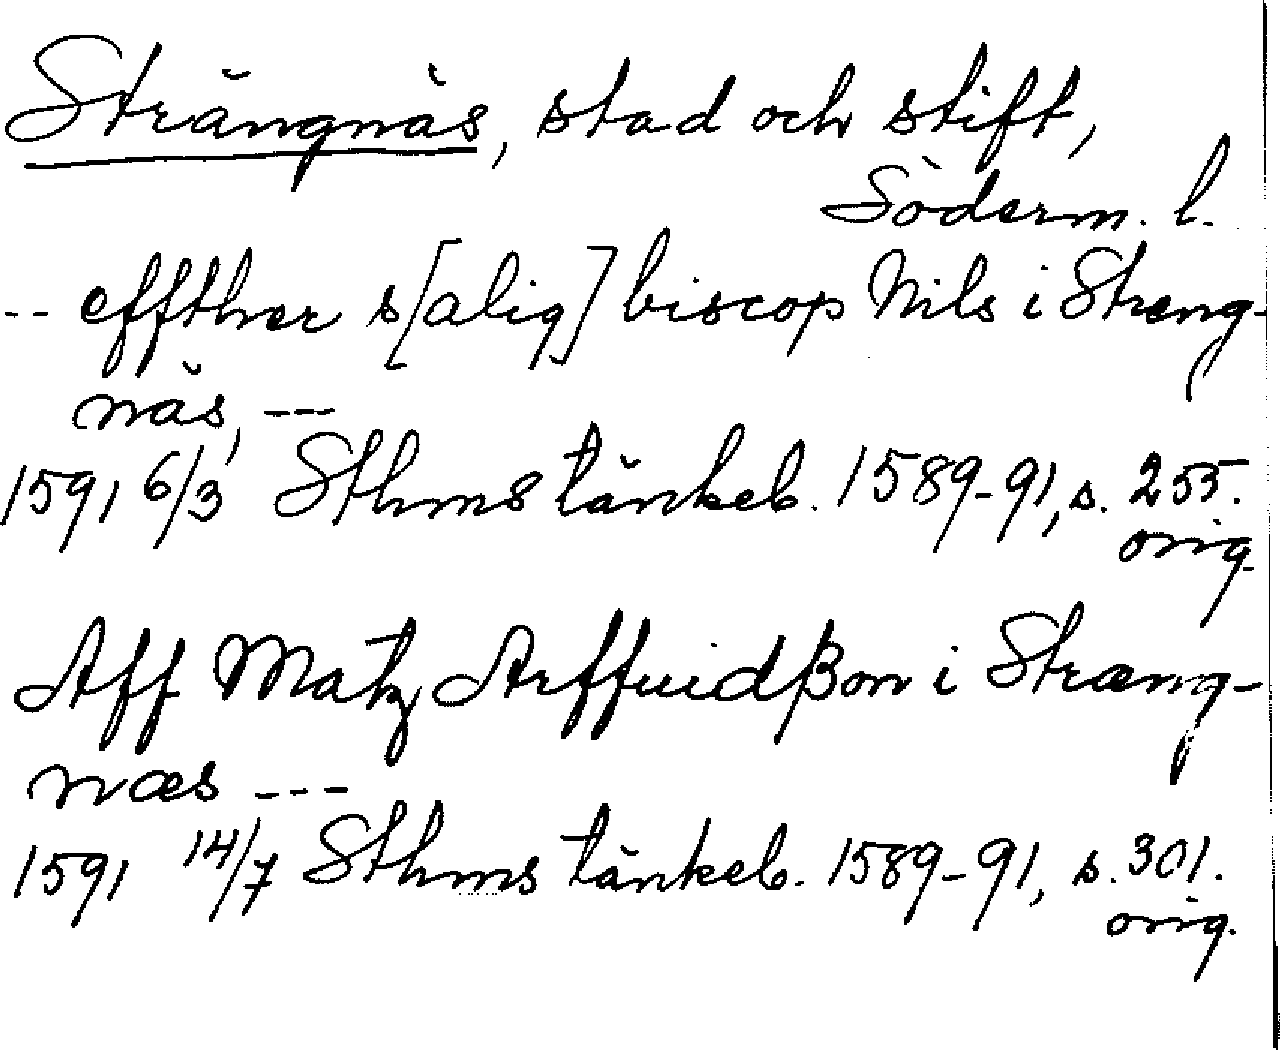 Strängnäs, stad och stift,
Söderm. l.
-- effther s[alig] biscop Nils i Streng-
näs, ---
1591 6/3 Sthms tänkeb. 1589-91, s. 255.
orig.
Aff Matz Arffuidßon i Stræng-
næs ---
1591 14/7 Sthms tänkeb. 1589-91, s. 301.
orig.